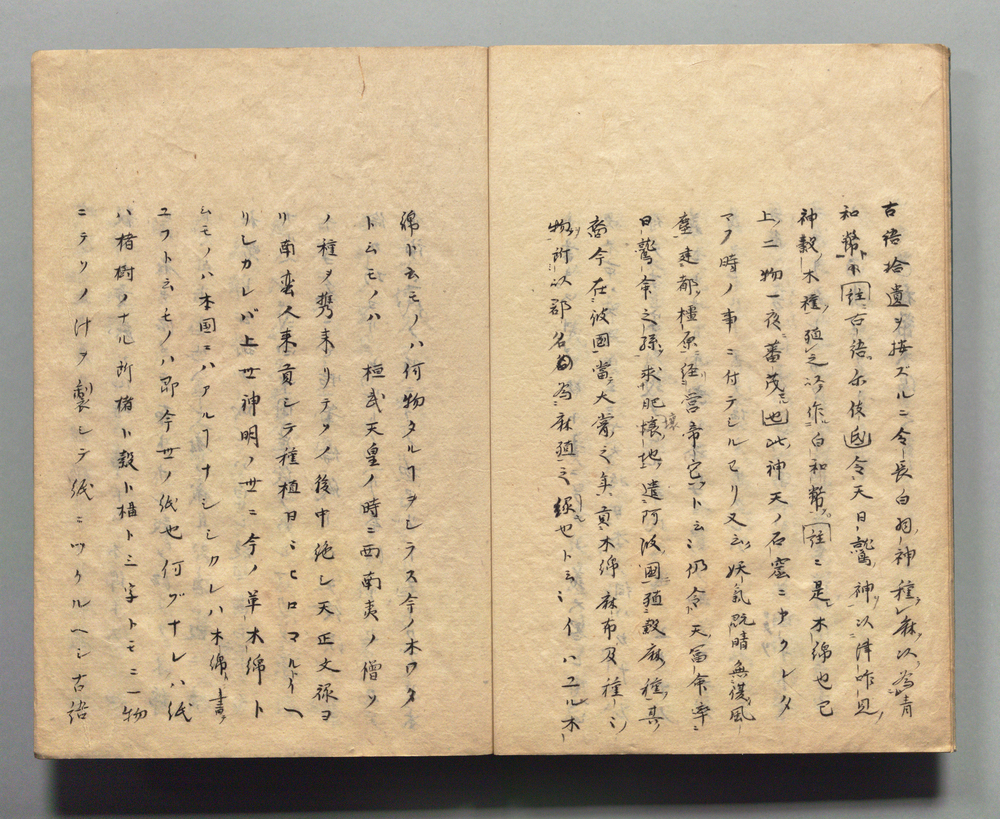 古語拾遺ヲ按ズルニ令長白羽神種麻以為青
和幣下註古語尓伎氐令天日鷲神以津咋見
神穀木種殖之以作白和幣註ニ是木綿也已
上二物一夜蕃茂也此神天ノ石窟ニカクレタ
マフ時ノ事ニ付テシルセリ又云妖氣既晴無復風
塵建都橿原経営帝宅ト云ミ仍令天冨命率
日鷲命之孫求肥壌地遣阿波國殖穀麻種其
裔今在彼國當大嘗之年貢木綿麻布及種ミ
物所以郡名為麻殖之縁也ト云ミイハユル木
綿ト云モノハ何物タルヿヲシラス今ノ木ワタ
ト云モノハ 桓武天皇ノ時ニ西南夷ノ僧ソ
ノ種ヲ携来リテソノ後中絶シ天正文禄ヨ
リ南蛮人来貢シテ種植日ミニヒロマルトイヘ
リシカレバ上世神明ノ世ニ今ノ草木綿ト
云モノハ本国ニハアルヿナシシカレハ木綿ト書
ユフト云モノハ即今世ノ紙也何グナレハ紙
ハ楮樹ノナル所楮ト穀ト構ト三字トモニ一物
ニテソノ汁ヲ製シテ紙ニツクルヘシ古語